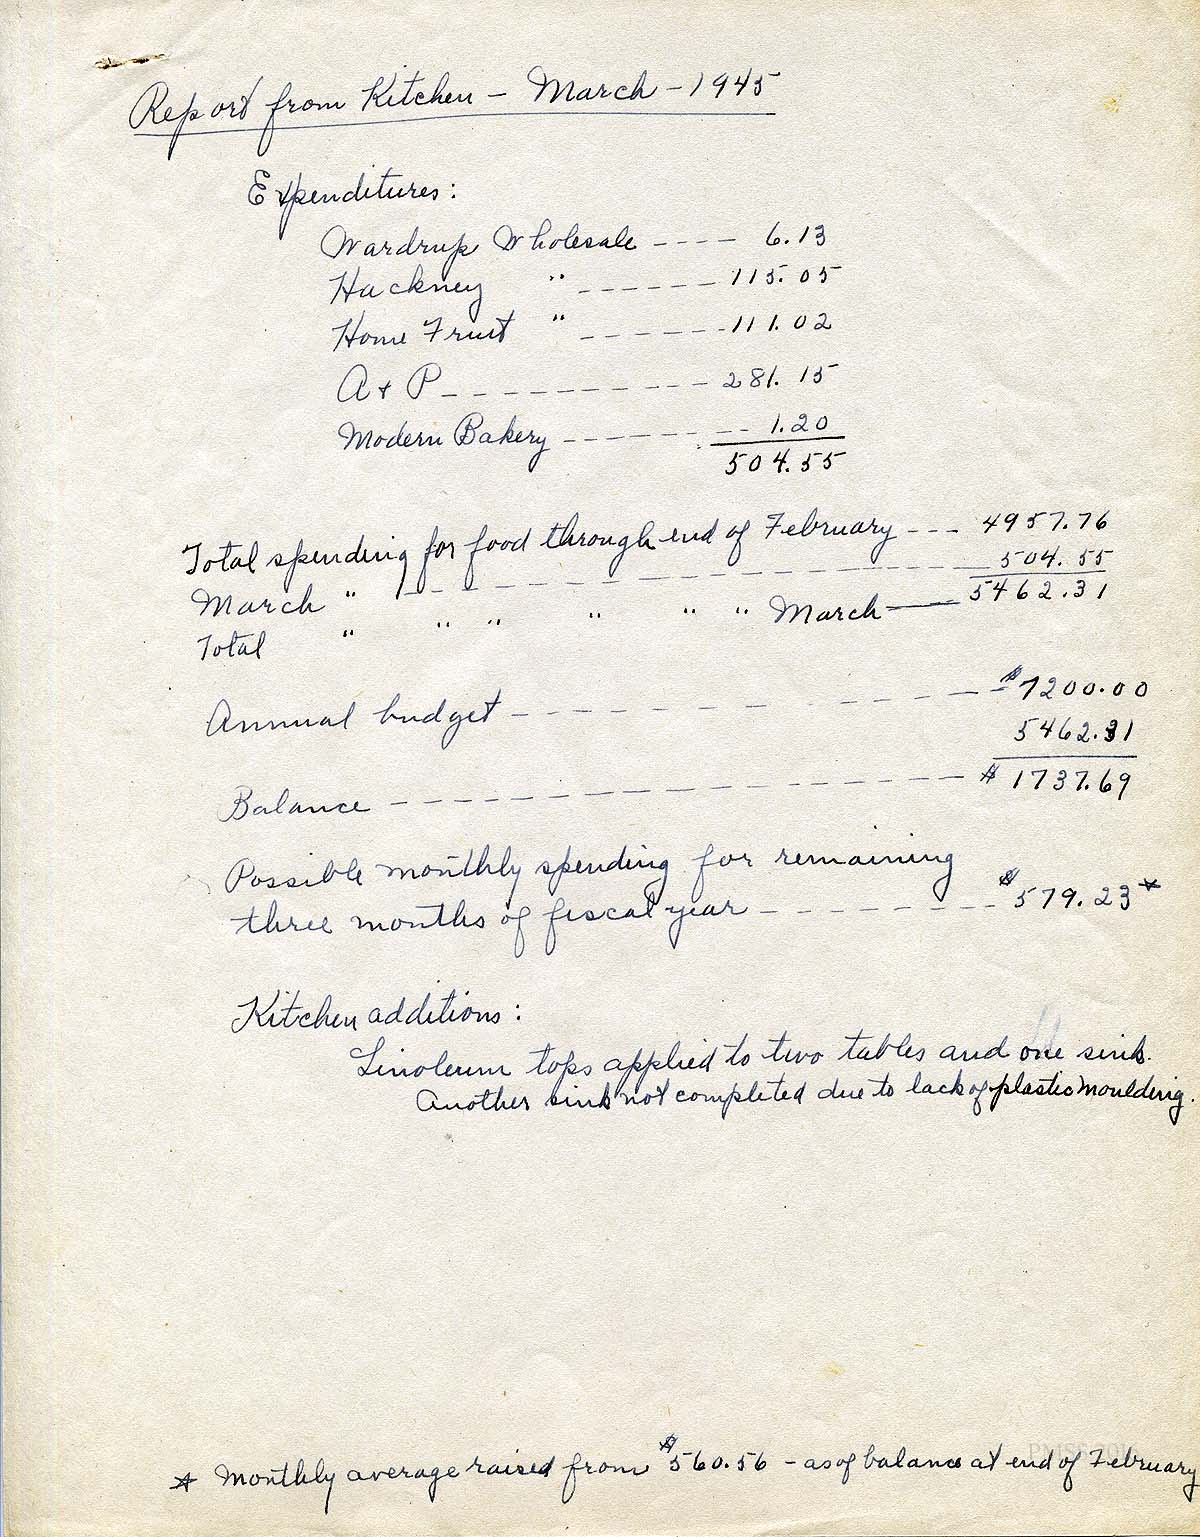 Report from Kitchen – March – 1945
Expenditures:
Wardrup Wholesale ---- 6.13
Hackney " ------ 115.05
Home Fruit " ------ 111.02
A & P ---------- 281.15
Modern Bakery ------- 1.20
504.55
Total spending for food through end of February --- 4957.76
March " ---------------- 504.55
Total " " " " " " March — 5462.31
Annual budget ---------- $7200.00
5462.31
Balance -------------- $1737.69
Possible monthly spending for remaining
three months of fiscal year -------- $579.23*
Kitchen additions:
Linoleum tops applied to two tables and one sink.
Another sink not completed due to lack of plastic moulding.
* Monthly average raised from $560.56 – as of balance at end of February